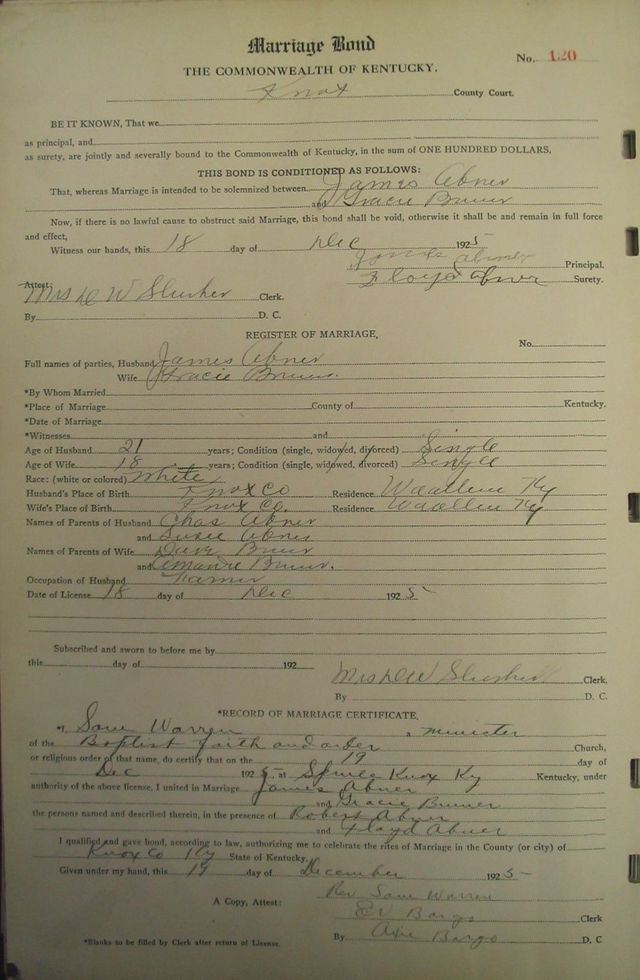 Marriage Bond
No. 120
THE COMMONWEALTH OF KENTUCKY.
Knox County Court.
BE IT KNOWN, That we
as principal, and
as surety, are jointly and severally bound to the Commonwealth of Kentucky, in the sum of ONE HUNDRED DOLLARS.
THIS BOND IS CONDITIONED AS FOLLOWS:
That, whereas Marriage is intended to be solemnized between James Abner
and Gracie Bruner
Now, if there is no lawful cause to obstruct said Marriage, this bond shall be void, otherwise it shall be and remain in full force
and effect,
Witness our hands, this 18 day of Dec 1925
James Abner Principal.
Floyd Abner Surety.
Attest:
Mrs D W Slusher Clerk.
By D. C.
REGISTER OF MARRIAGE.
No.
Full names of parties, Husband James Abner
Wife Gracie Bruner
*By Whom Married
*Place of Marriage County of Kentucky.
*Date of Marriage
*Witnesses and
Age of Husband 21 years; Condition (single, widowed, divorced) Single
Age of Wife 18 years; Condition (single, widowed, divorced) Single
Race: (white or colored) White
Husband's Place of Birth Knox Co Residence Ky
Wife's Place of Birth Knox Co. Residence Ky
Names of Parents of Husband Chas Abner
and Susie Abner
Names of Parents of Wife Dave Bruner
and Bruner.
Occupation of Husband Farmer
Date of License 18 day of Dec 1925
Subscribed and sworn to before me by
this day of 192
Mrs D W Slusher Clerk.
By D. C.
*RECORD OF MARRIAGE CERTIFICATE.
I, Sam Warren a minister
of the Baptist faith and order Church,
or religious order of that name, do certify that on the 19 day of
Dec 1925, at Knox Ky Kentucky, under
authority of the above license, I united in Marriage James Abner
and Gracie Bruner
the persons named and described therein, in the presence of Robert Abner
and Floyd Abner
I qualified and gave bond, according to law, authorizing me to celebrate the rites of Marriage in the County (or city) of
Knox Co Ky State of Kentucky.
Given under my hand, this 19 day of December 1925
Rev Sam Warren
A Copy, Attest: Bargo Clerk
*Blanks to be filled by Clerk after return of License. By Bargo D. C